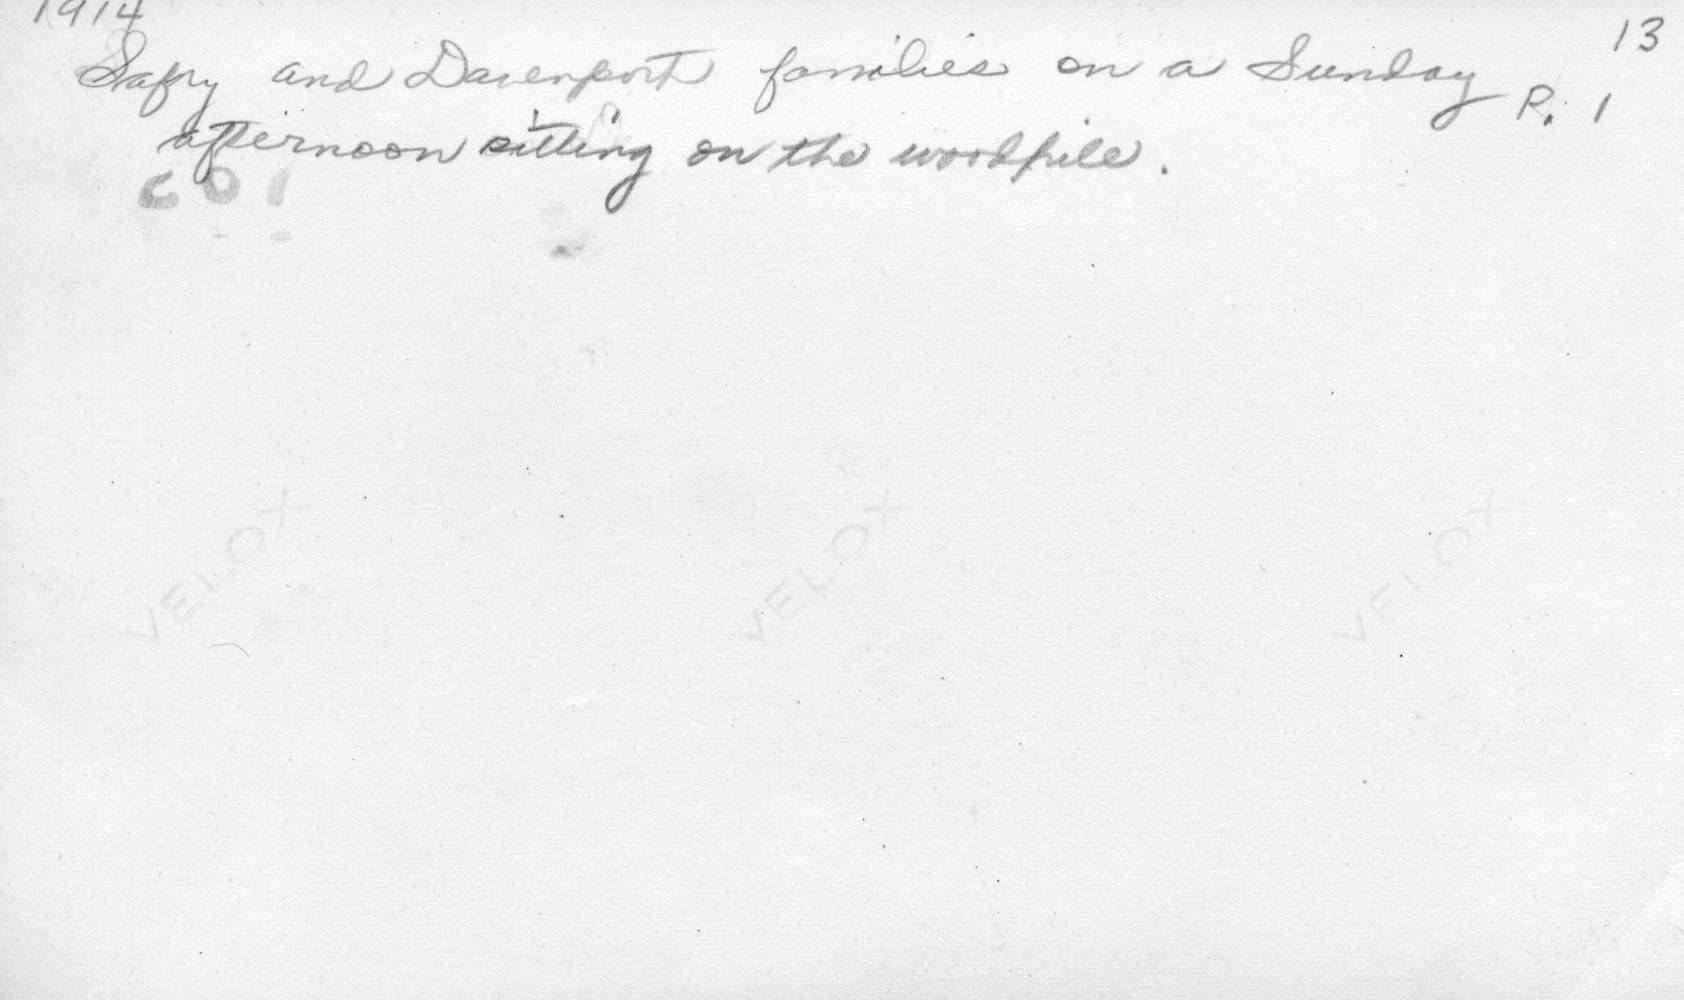 1914
13
Safry and Davenport families on a Sunday
R. 1
afternoon sitting on the woodpile.
VELOX VELOX VELOX